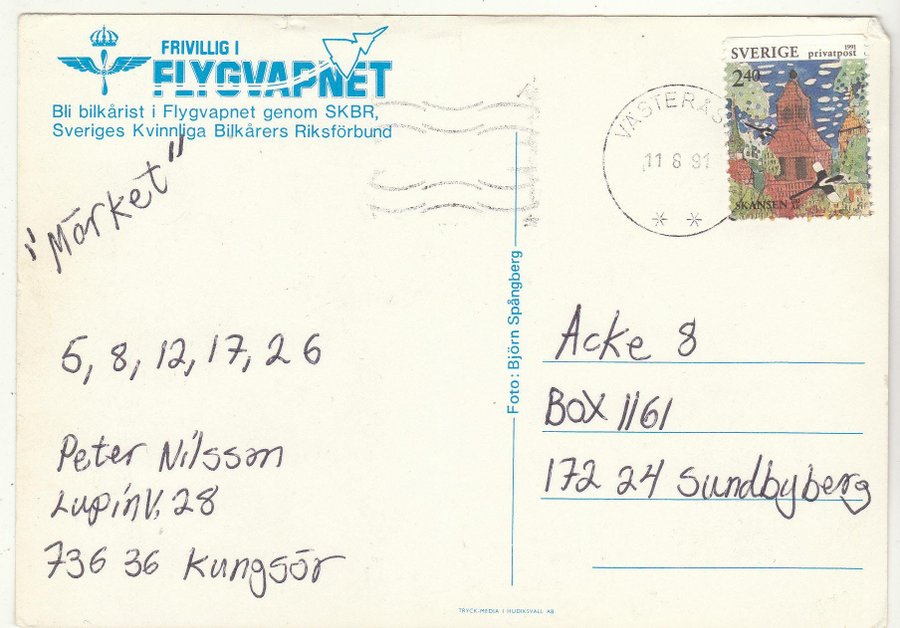 FRIVILLIG I
FLYGVAPNET
Bli bilkårist i Flygvapnet genom SKBR,
Sveriges Kvinnliga Bilkårers Riksförbund
i "Mörket"
5, 8, 12, 17, 26
Peter Nilsson
LupinV. 28
736 36 Kungsör
Foto: Björn Spångberg
TRYCK-MEDIA I HUDIKSVALL AB
VÄSTERÅS
11 8 91
SVERIGE privatpost 1991
2 40
SKANSEN
Acke 8
BOX 1161
172 24 Sundbyberg